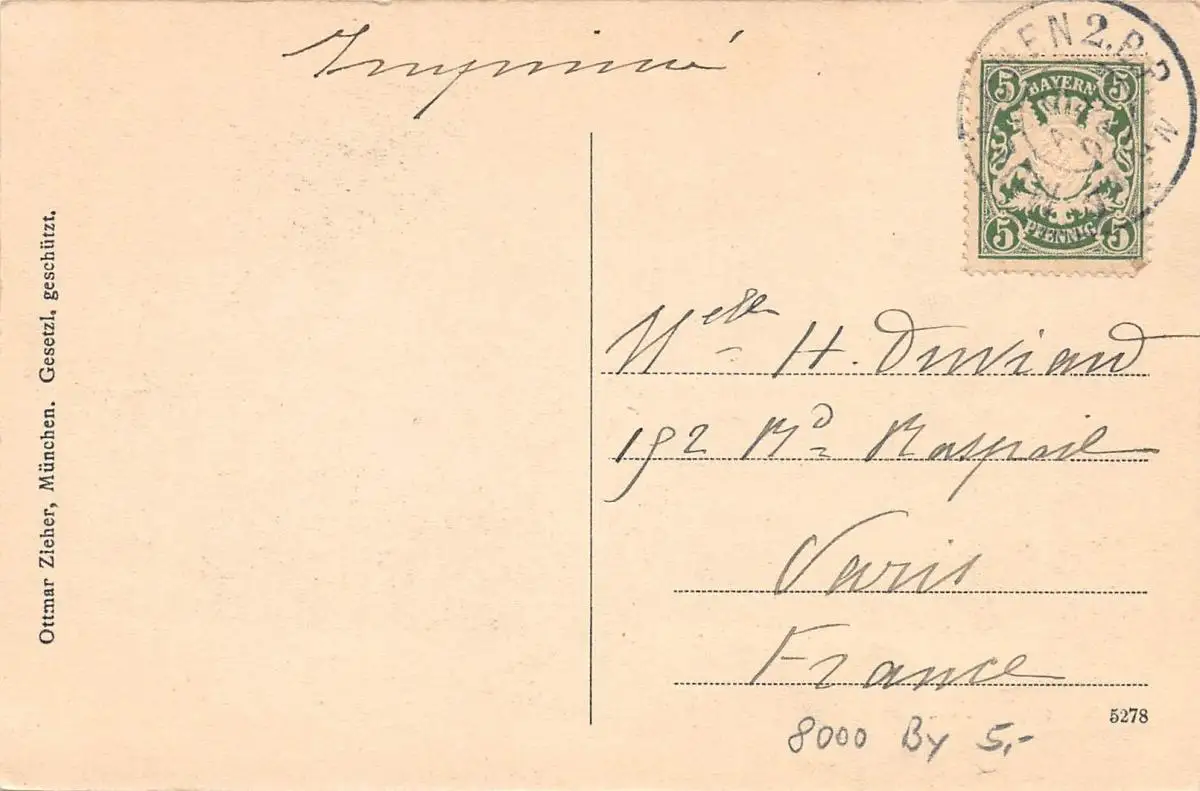 Imprimé
EN 2. B.P.
5 BAYERN 5
5 PFENNIG 5
Ottmar Zieher, München. Gesetzl. geschützt.
Melle H. Duviard
192 Bd Raspail
Paris
France
5278
8000 By 5,-